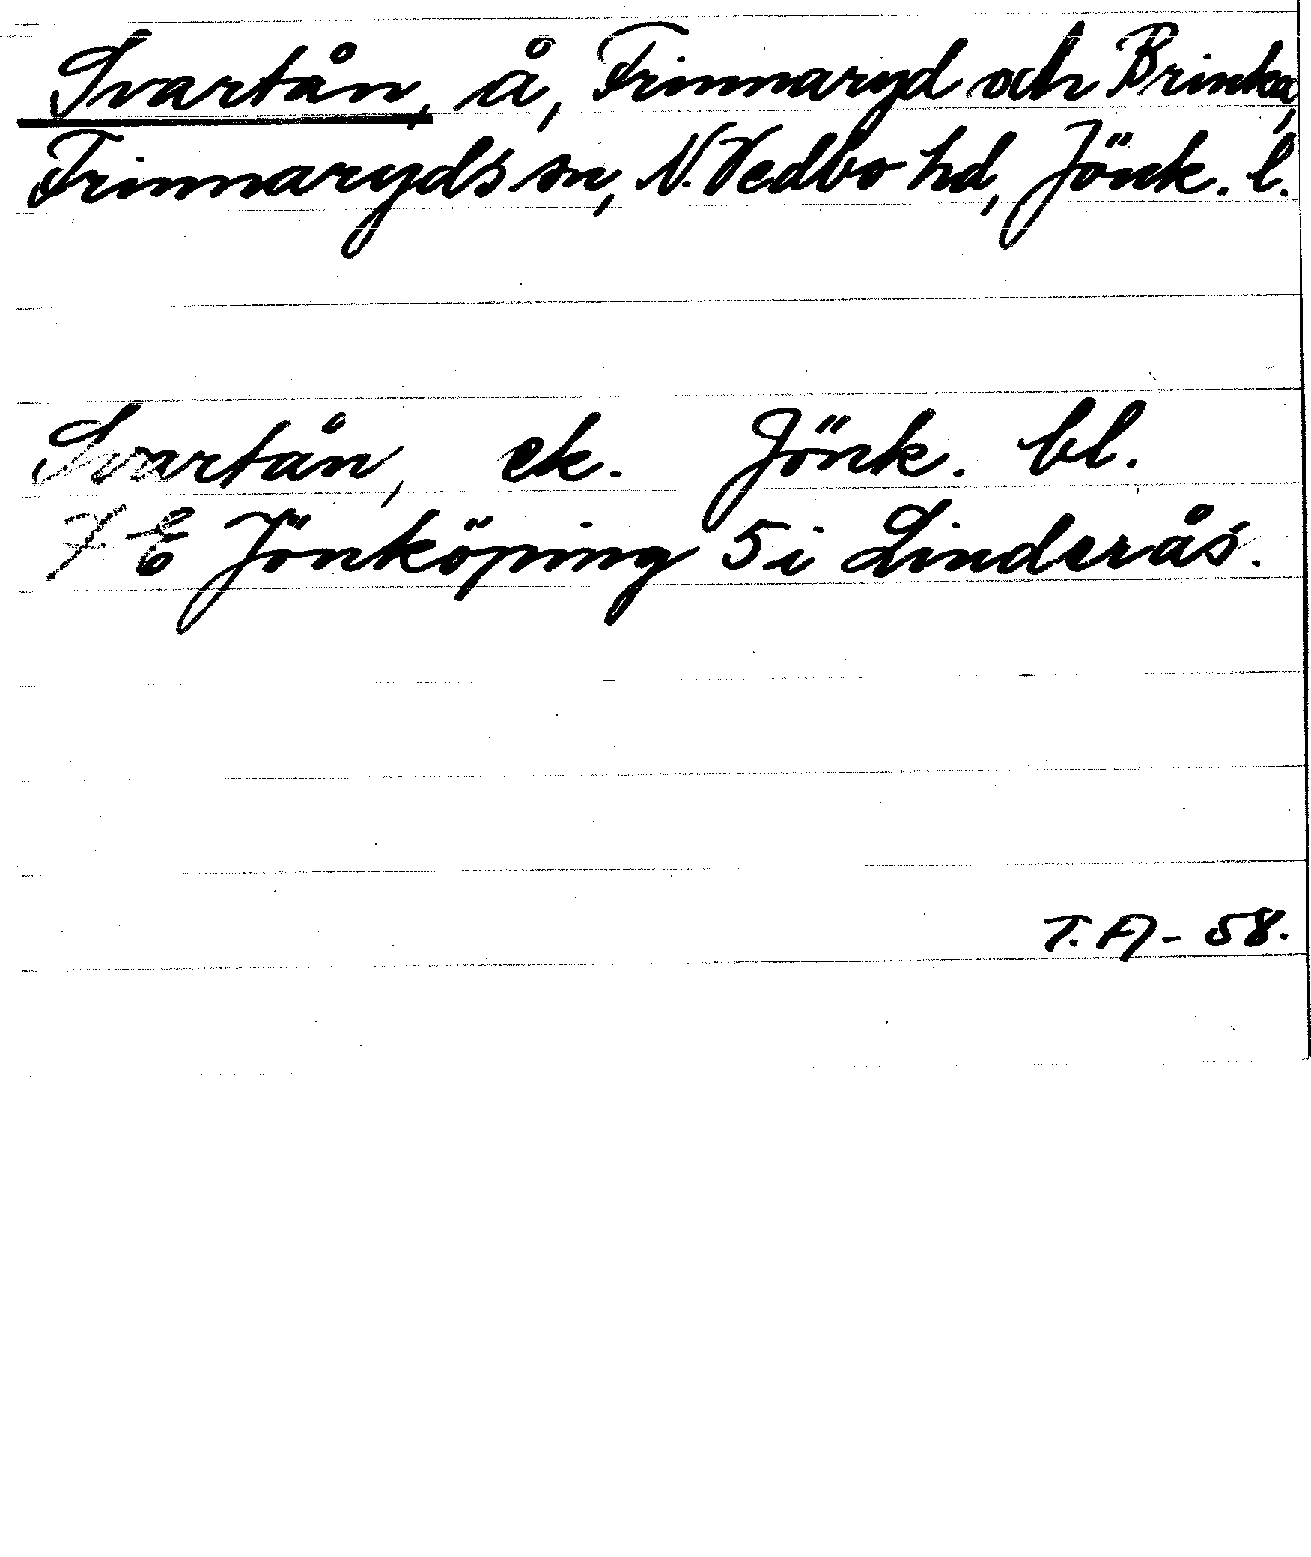 Svartån, å, Frinnaryd och Brinka,
Frinnaryds sn, N. Vedbo hd, Jönk. l.
Svartån, ek. Jönk. bl.
7 E Jönköping 5 i Linderås.
T. A - 58.